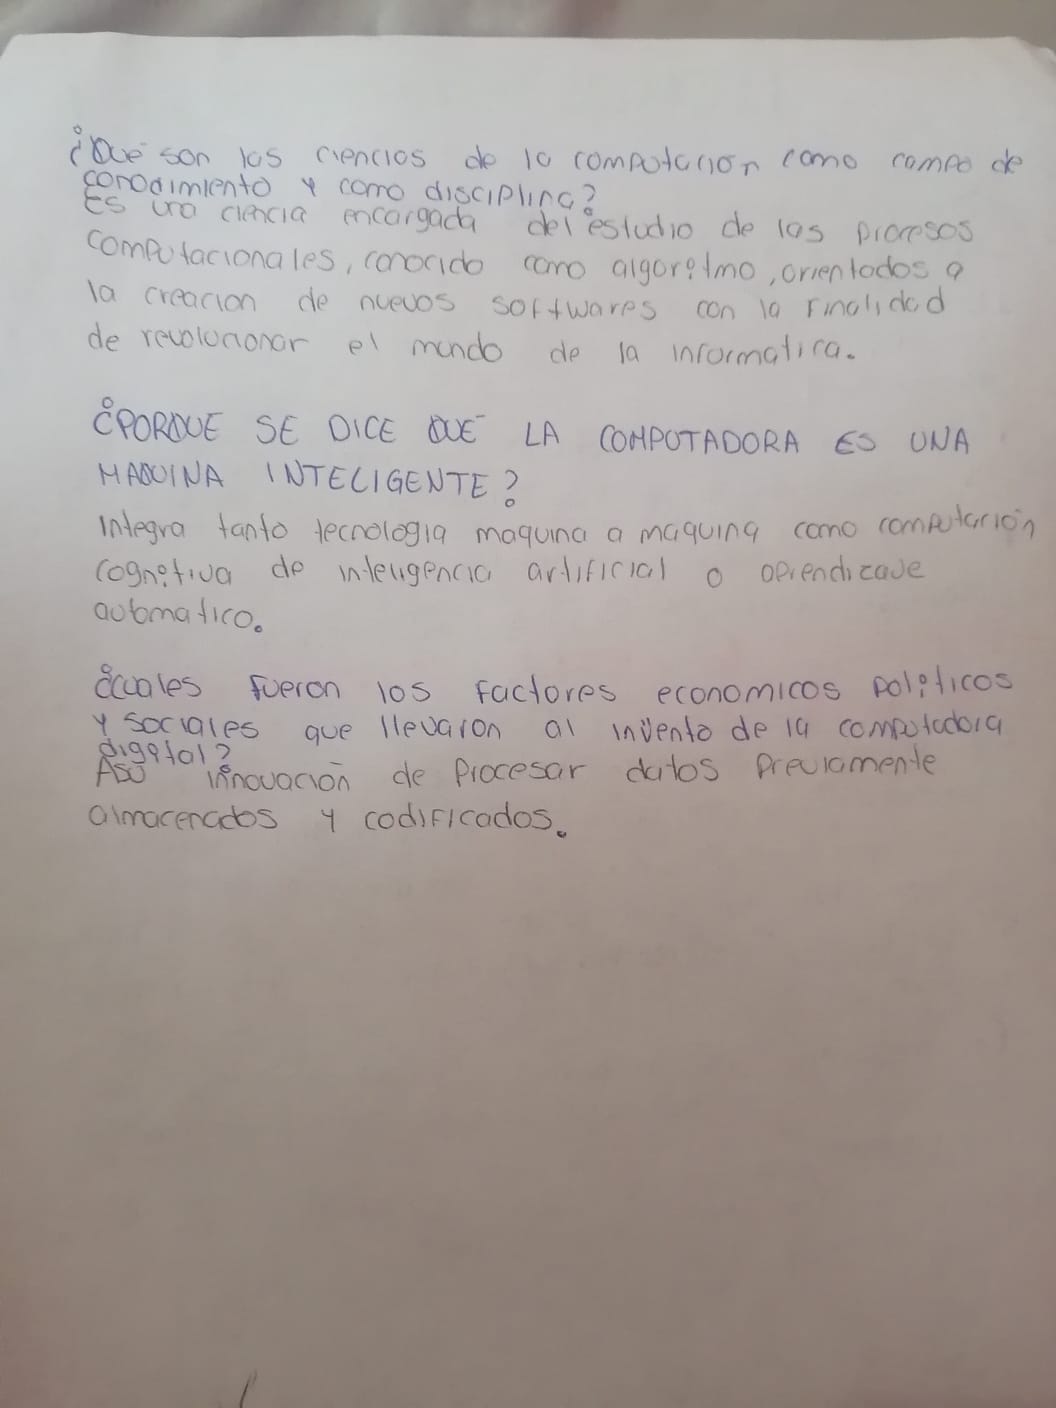 ¿Qué son las ciencias de la computación como campo de
conocimiento y como disciplina?
Es una ciencia encargada del estudio de los procesos
computacionales, conocido como algoritmo, orientados a
la creacion de nuevos softwares con la finalidad
de revolucionar el mundo de la informatica.
¿PORQUE SE DICE QUE LA COMPUTADORA ES UNA
MAQUINA INTELIGENTE?
Integra tanto tecnologia maquina a maquina como computación
cognitiva de inteligencia artificial o aprendizaje
automatico.
¿cuales fueron los factores economicos politicos
y sociales que llevaron al invento de la computadora
digital?
A su innovación de procesar datos previamente
almacenados y codificados.